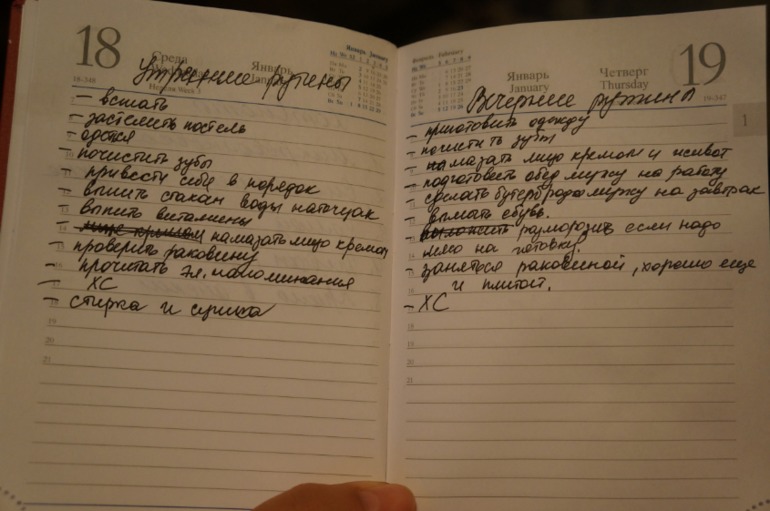 18
Среда
Январь
Январь January
18-348
Утренние рутины
– встать
– застелить постель
– одется
– почистить зубы
– привести себя в порядок
– выпить стакан воды натощак
– выпить витамины
– намазать лицо кремом
– проверить раковину
– прочитать эл. напоминания
– ХС
– стирка и сушка
19
20
21
19
Февраль February
Январь
January
Четверг
Thursday
19-347
1
Вечерние рутины
– приготовить одежду
– почистить зубы
– намазать лицо кремом и живот
– подготовить обед мужу на работу
– сделать бутерброды мужу на завтрак
– вымыть обувь.
– разморозить если надо
мясо на готовку
– заняться раковиной, хорошо еще
и плитой.
– ХС
18
19
20
21